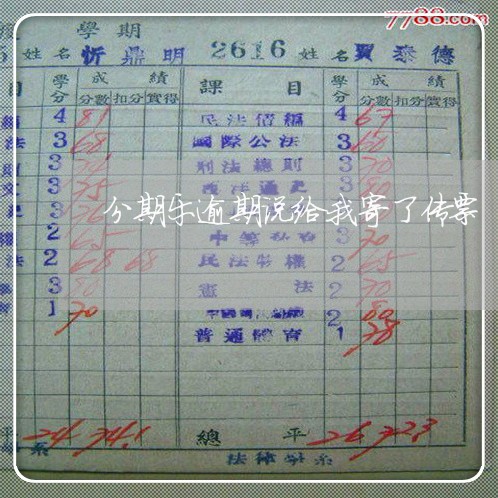 7788.com
學期
姓名 忻鼎明 2616 姓名 賈泰德
目 學分 成績 課目 學分 成績
分數 扣分 實得 分數 扣分 實得
4 81 民法債編 4 67
法 3 68 國際公法 3 60
3 刑法總則 3 70
3 75 3
分期乐逾期说给我寄了传票
2 65 3 70
法 2 68 68 民法物權 2 65
3 憲法 2 70
1 70 2 80
普通體育 1 78
平 24 74.1 總平 26 72.3
系 法律學系